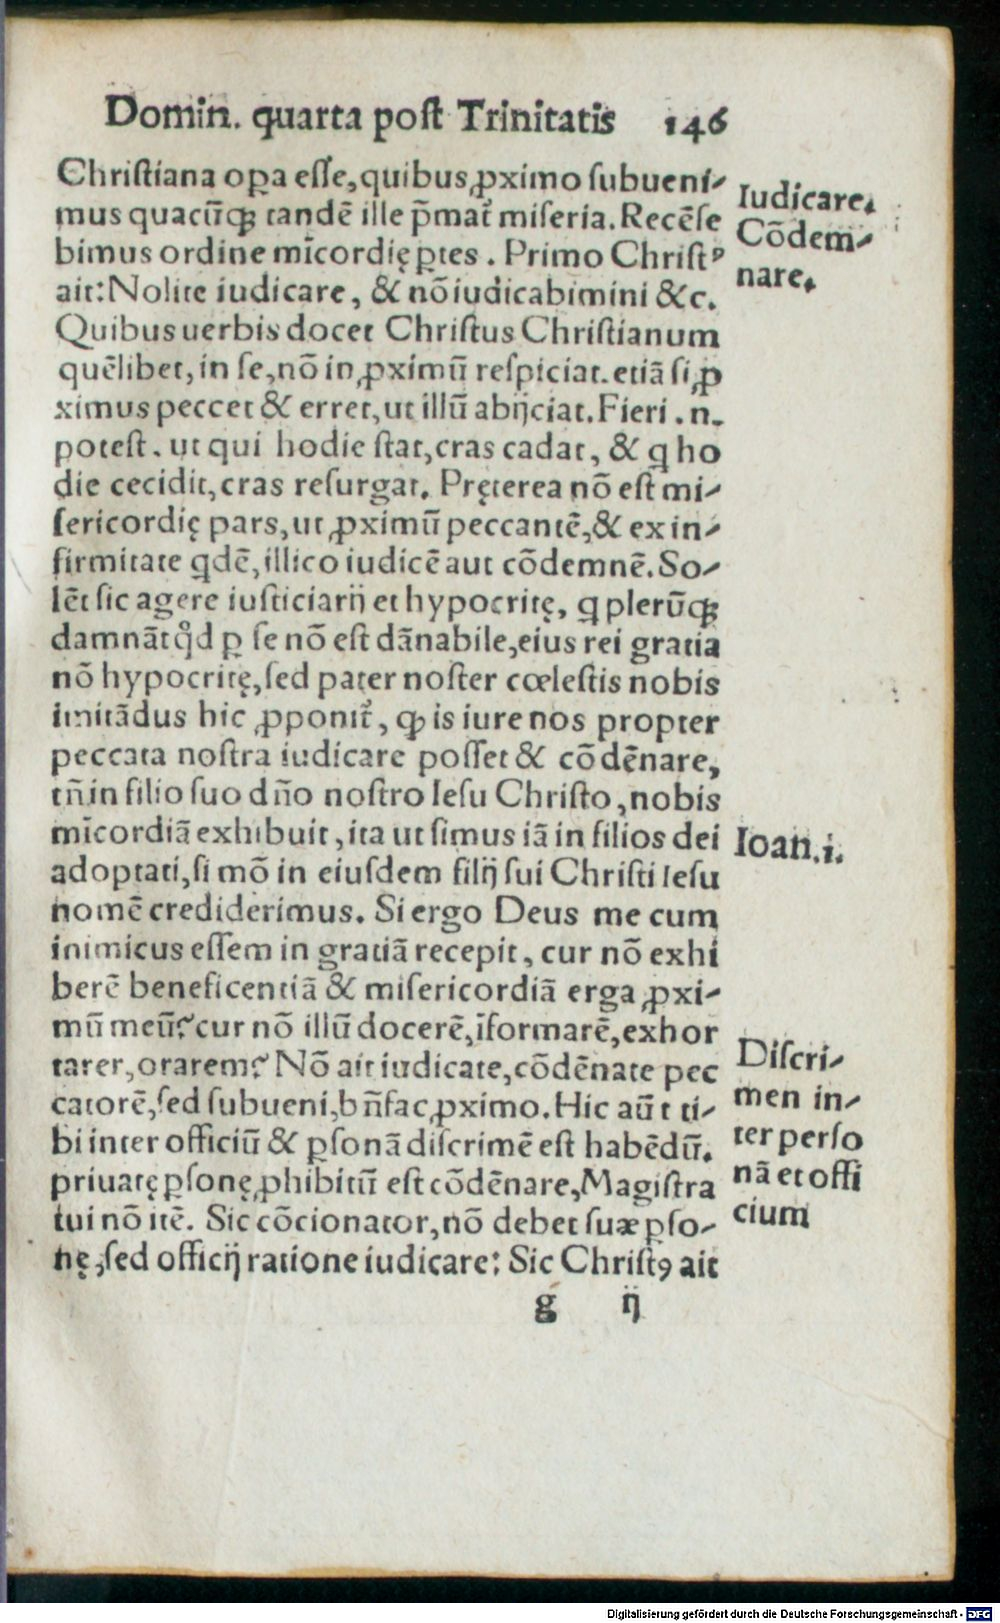 Domin. quarta post Trinitatis 146
Christiana oꝑa eſſe, quibus ꝓximo ſubueni⸗
mus quacūqꝫ tandē ille p̄mat᷑ miſeria. Recēſe
bimus ordine mīcordię ꝑtes. Primo Chriſtꝰ
ait: Nolite iudicare, & nō iudicabimini &c.
Quibus uerbis docet Chriſtus Chriſtianum
quēlibet, in ſe, nō in ꝓximū reſpiciat. etiā ſi ꝓ
ximus peccet & erret, ut illū abijciat. Fieri .n.
poteſt. ut qui hodie ſtat, cras cadat, & q ho
die cecidit, cras reſurgat. Pręterea nō eſt mi⸗
ſericordię pars, ut ꝓximū peccantē, & ex in⸗
firmitate qdē, illico iudicē aut cōdemnē. So⸗
lēt ſic agere iuſticiarij et hypocritę, q plerūqꝫ
damnāt qͦd ꝑ ſe nō eſt dānabile, eius rei gratia
nō hypocritę, ſed pater noſter cœleſtis nobis
imitādus hic ꝓponit᷑, ꝙ is iure nos propter
peccata noſtra iudicare poſſet & cōdēnare,
tn̄ in filio ſuo dn̄o noſtro Ieſu Chriſto, nobis
mīcordiā exhibuit, ita ut ſimus iā in filios dei
adoptati, ſi mō in eiuſdem filij ſui Chriſti Ieſu
nomē crediderimus. Si ergo Deus me cum
inimicus eſſem in gratiā recepit, cur nō exhi
berē beneficentiā & miſericordiā erga ꝓxi⸗
mū meū? cur nō illū docerē, īformarē, exhor
tarer, orarem? Nō ait iudicate, cōdēnate pec
catorē, ſed ſubueni, bn̄fac ꝓximo. Hic aūt ti⸗
bi inter officiū & ꝑſonā diſcrimē eſt habēdū.
priuatę ꝑſonę ꝓhibitū eſt cōdēnare, Magiſtra
tui nō itē. Sic cōcionator, nō debet ſuæ ꝑſo⸗
nę, ſed officij ratione iudicare: Sic Chriſtꝰ ait
g ij
Iudicare.
Cōdem⸗
nare.
Ioan.i.
Diſcri⸗
men in⸗
ter perſo
nā et offi
cium
Digitalisierung gefördert durch die Deutsche Forschungsgemeinschaft - DFG